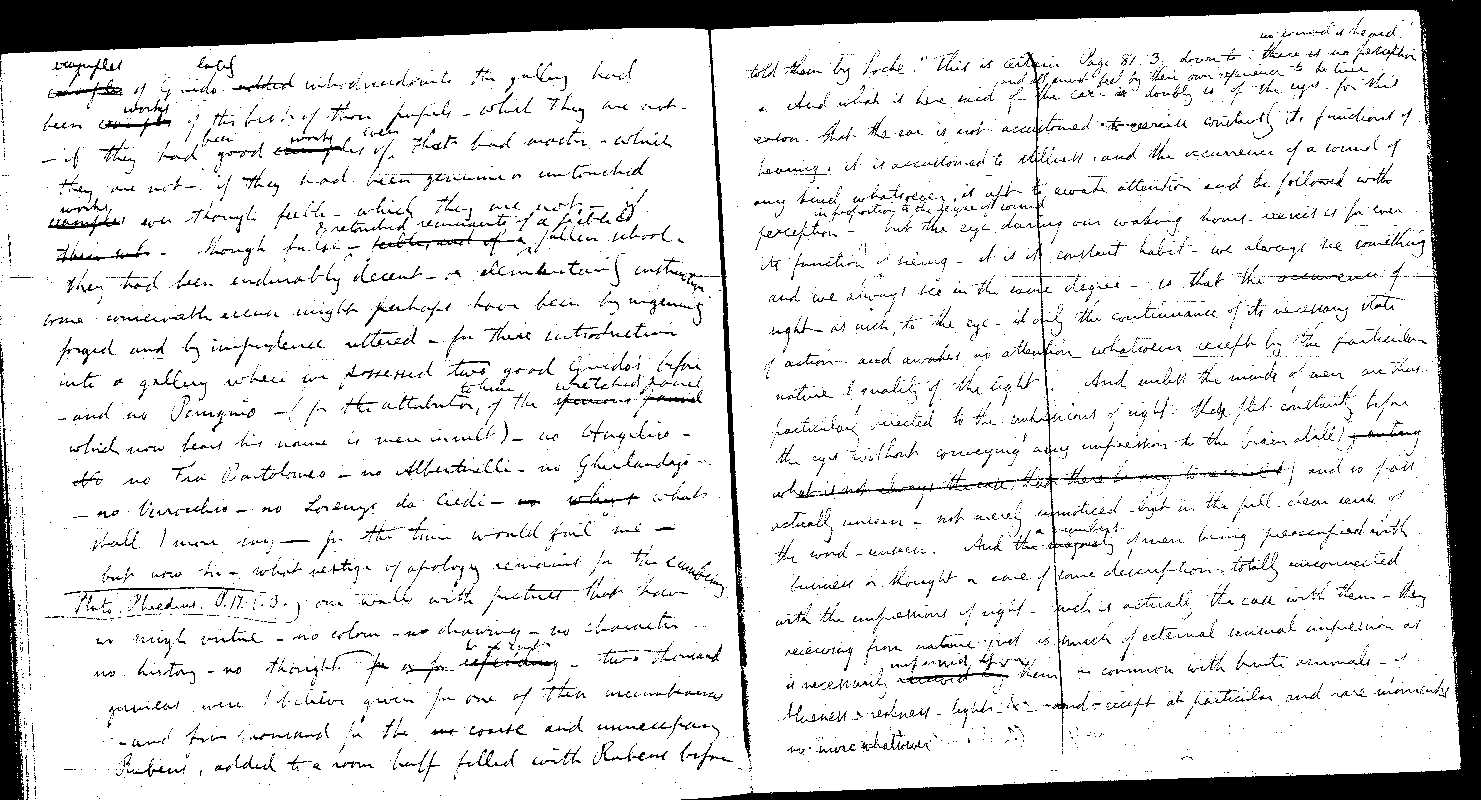 examples lately
examples of Guido added introduced into the gallery had
been works examples of the best of their pupils - which they are not -
- if they had been good works examples of that bad master - which
they are not - if they had been genuine or untouched
works examples even though feeble - which they are not - if
though false - retouched remnants of a feeble & fallen school -
they had been endurably decent - or elementarily instructive
some conceivable excuse might perhaps have been by ingenuity
forged and by impudence uttered - for their introduction
into a gallery where we possessed two good Guidos before
- and no Perugino - (for the attribution to him of the wretched panel
which now bears his name is mere insult) - no Angelico -
no Fra Bartolomeo - no Albertinelli - no Ghirlandajo -
- no Verrochio - no Lorenzo da Credi - what
shall I more say - for the time would fail me -
but now - what vestige of apology remains for the cumbering
Plato. Phaedrus. our walls with pictures that have
no single virtue - no colour - no drawing - no character -
no history - no thought - two thousand
guineas were I believe given for one of these incumbrances
- and two thousand for the coarse and unnecessary
Rubens, added to a room half filled with Rubens before
no sound is heard.
told them by Locke. "This is certain Page 81. 3. down to: there is no perception
And what is here said of the ear is doubly so of the eye. for this
reason. that the ear is not accustomed to exercise constantly its functions of
hearing; it is accustomed to stillness, and the occurrence of a sound of
any kind whatsoever, is apt to awake attention and be followed with
in proportion to the degree of sound
perception - but the eye during our waking hours - exercises for ever
its function of seeing - it is its constant habit - we always see something
and we always see in the same degree - so that the occurrence of
sight - as such, to the eye - is only the continuance of its necessary state
of action - and awakes no attention whatsoever except by the particular
nature & quality of the sight. And unless the minds of men are thus
particularly directed to the impressions of sight - they flit constantly before
the eyes without conveying any impression to the brain at all;
what is not always the case, that there be any to receive it; and so pass
actually unseen - not merely unnoticed - but in the full clear sense of
the word - unseen. And the numbers of men being preoccupied with
business or thought or care of some description - totally unconnected
with the impressions of sight - such is actually the case with them - they
receiving from nature just so much of external sensual impression as
is necessarily impressed upon them in common with brute animals - of
blueness & redness - light - &c - and - except at particular and rare moments
no more whatsoever